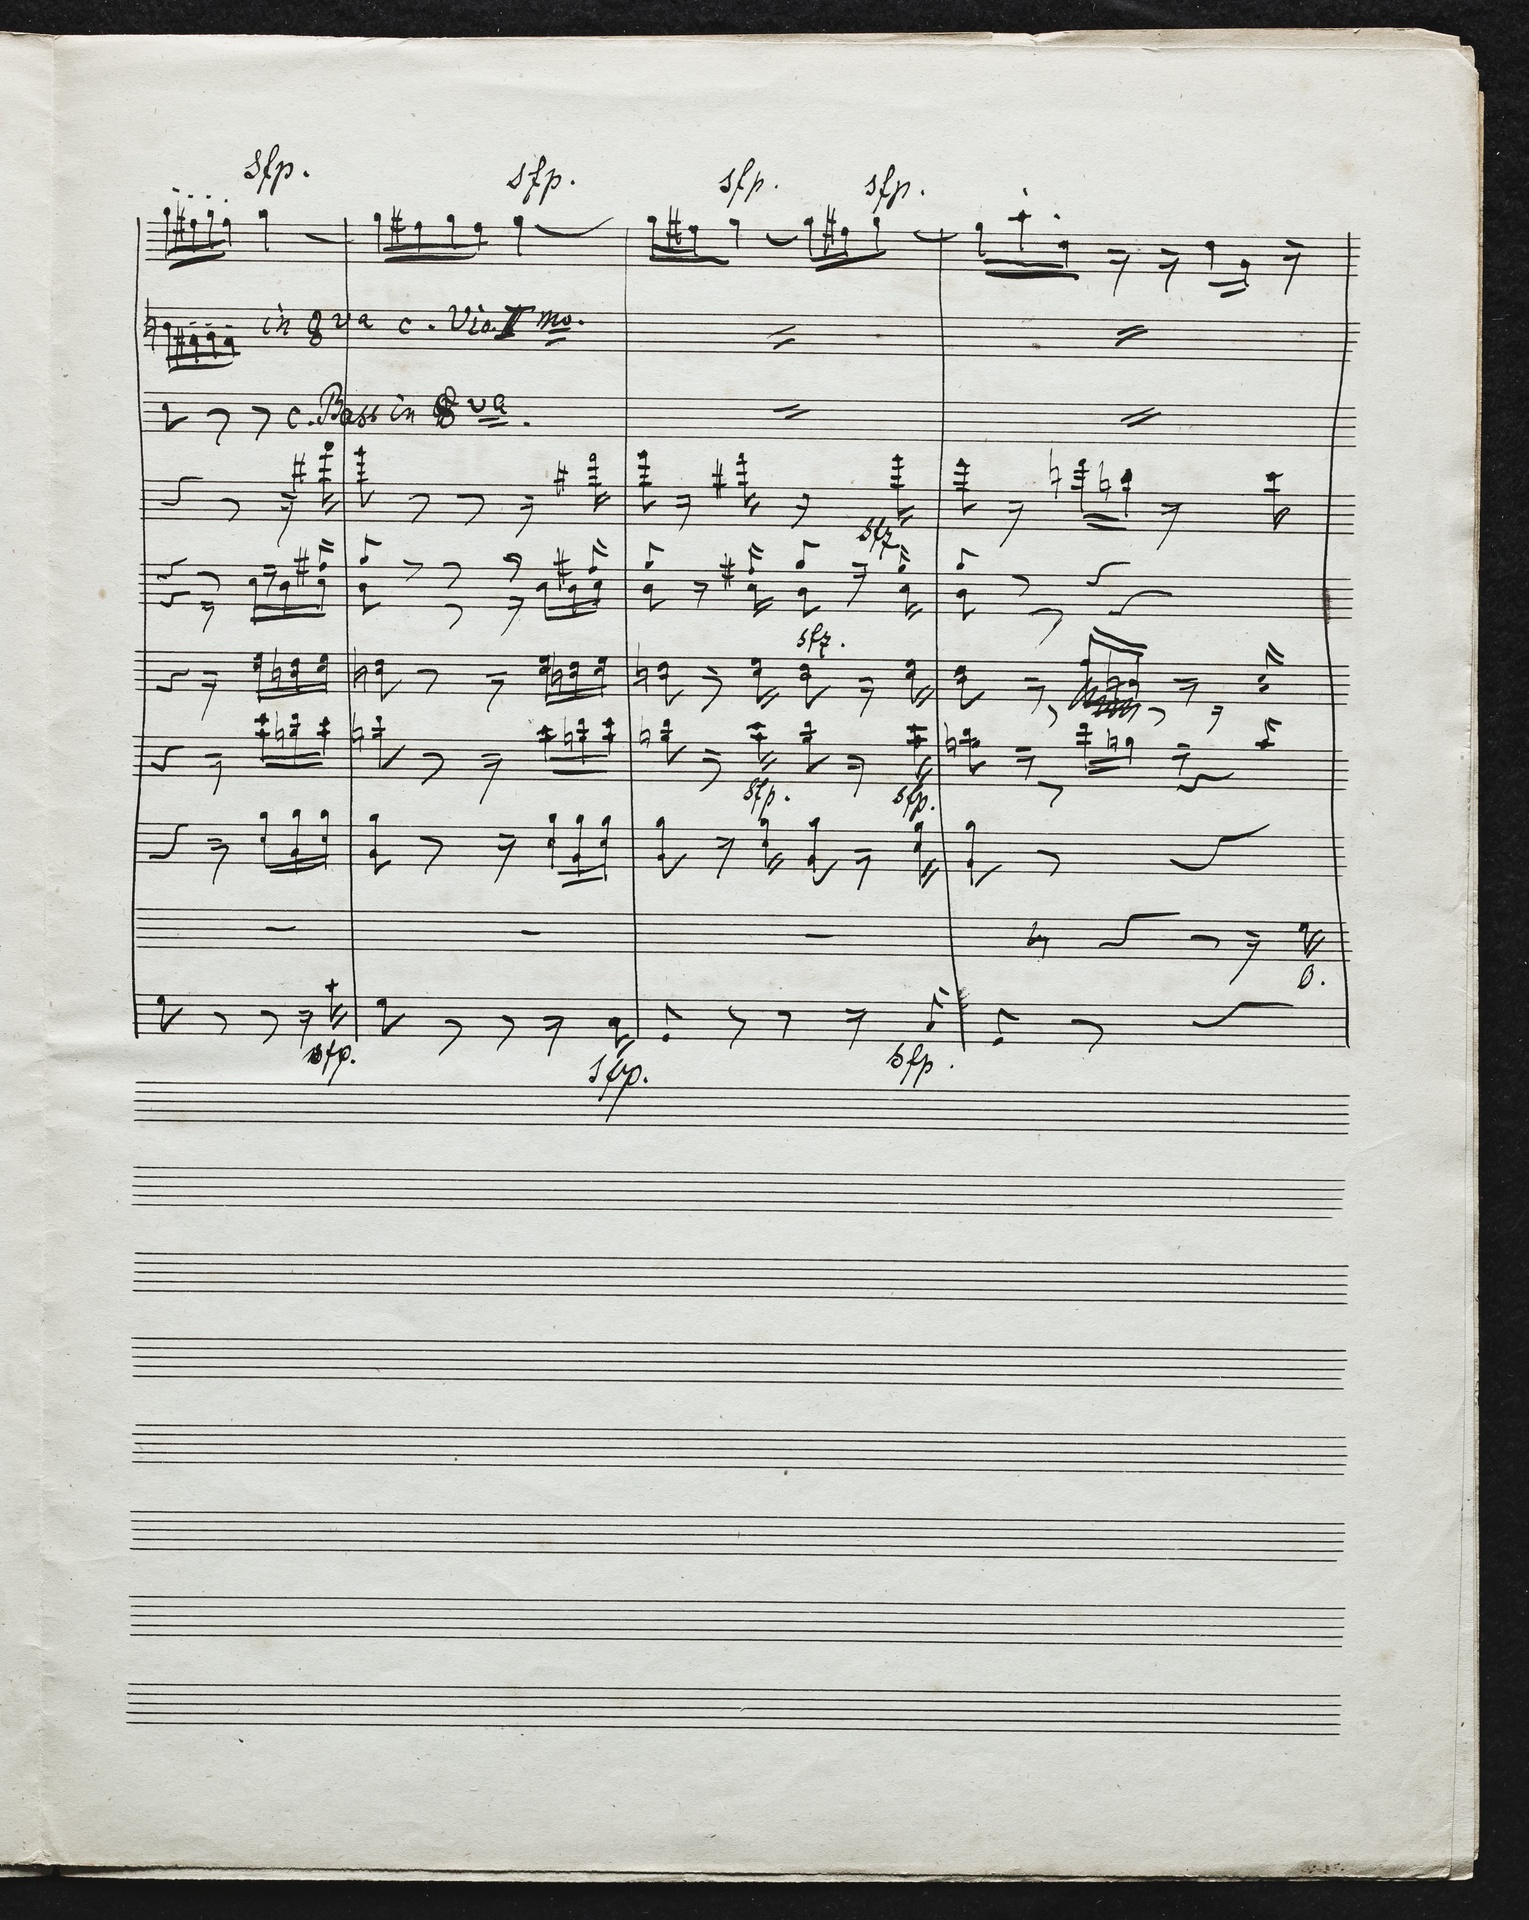 sfp. sfp. sfp. sfp.
in 8va c. Vio. Imo.
c. Bass in 8va.
sfz
sfz.
sfp. sfp.
sfp. sfp. sfp.